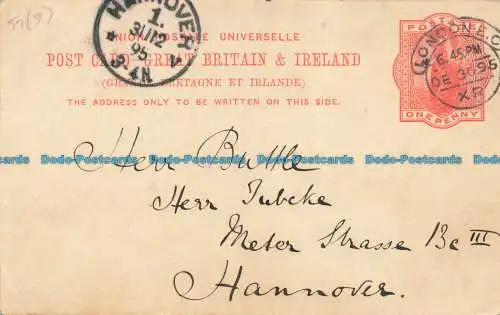 59(9)
HANNOVER
1.
31/12
95
3-4N.
UNION POSTALE UNIVERSELLE
POST CARD-GREAT BRITAIN & IRELAND
(GRANDE BRETAGNE ET IRLANDE)
THE ADDRESS ONLY TO BE WRITTEN ON THIS SIDE.
POSTAGE
ONE PENNY
LONDON
6.45PM
DE 30 95
XR
Dodo-Postcards Dodo-Postcards Dodo-Postcards Dodo-Postcards Dodo-Postcards Dodo-Postcards
Herr Buttle
Herr Tubcke
Meter Strasse 13c III
Hannover.